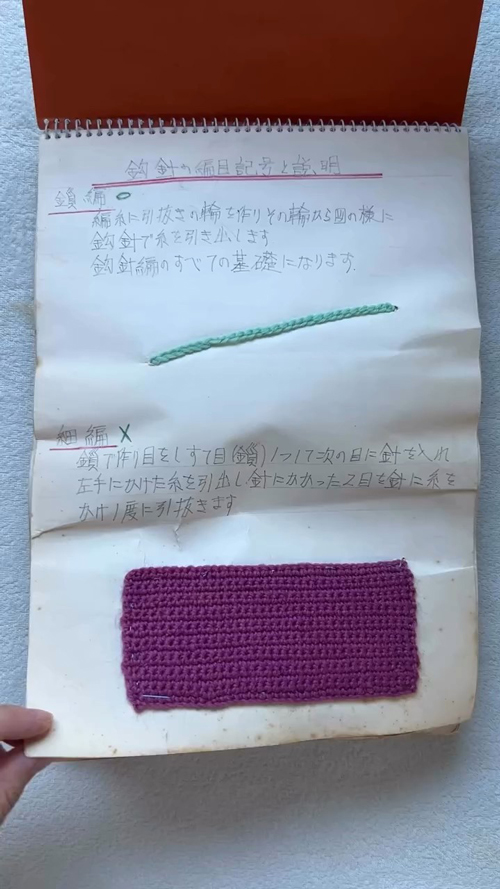 鈎針の編目記号と説明
鎖編 ○
編糸に引抜きの輪を作りその輪から図の様に
鈎針で糸を引き出します
鈎針編のすべての基礎になります.
細編 ×
鎖で作り目をします1目(鎖)たって次の目に針を入れ
左手にかけた糸を引出し針にかかった2目を針に糸を
かけ1度に引抜きます